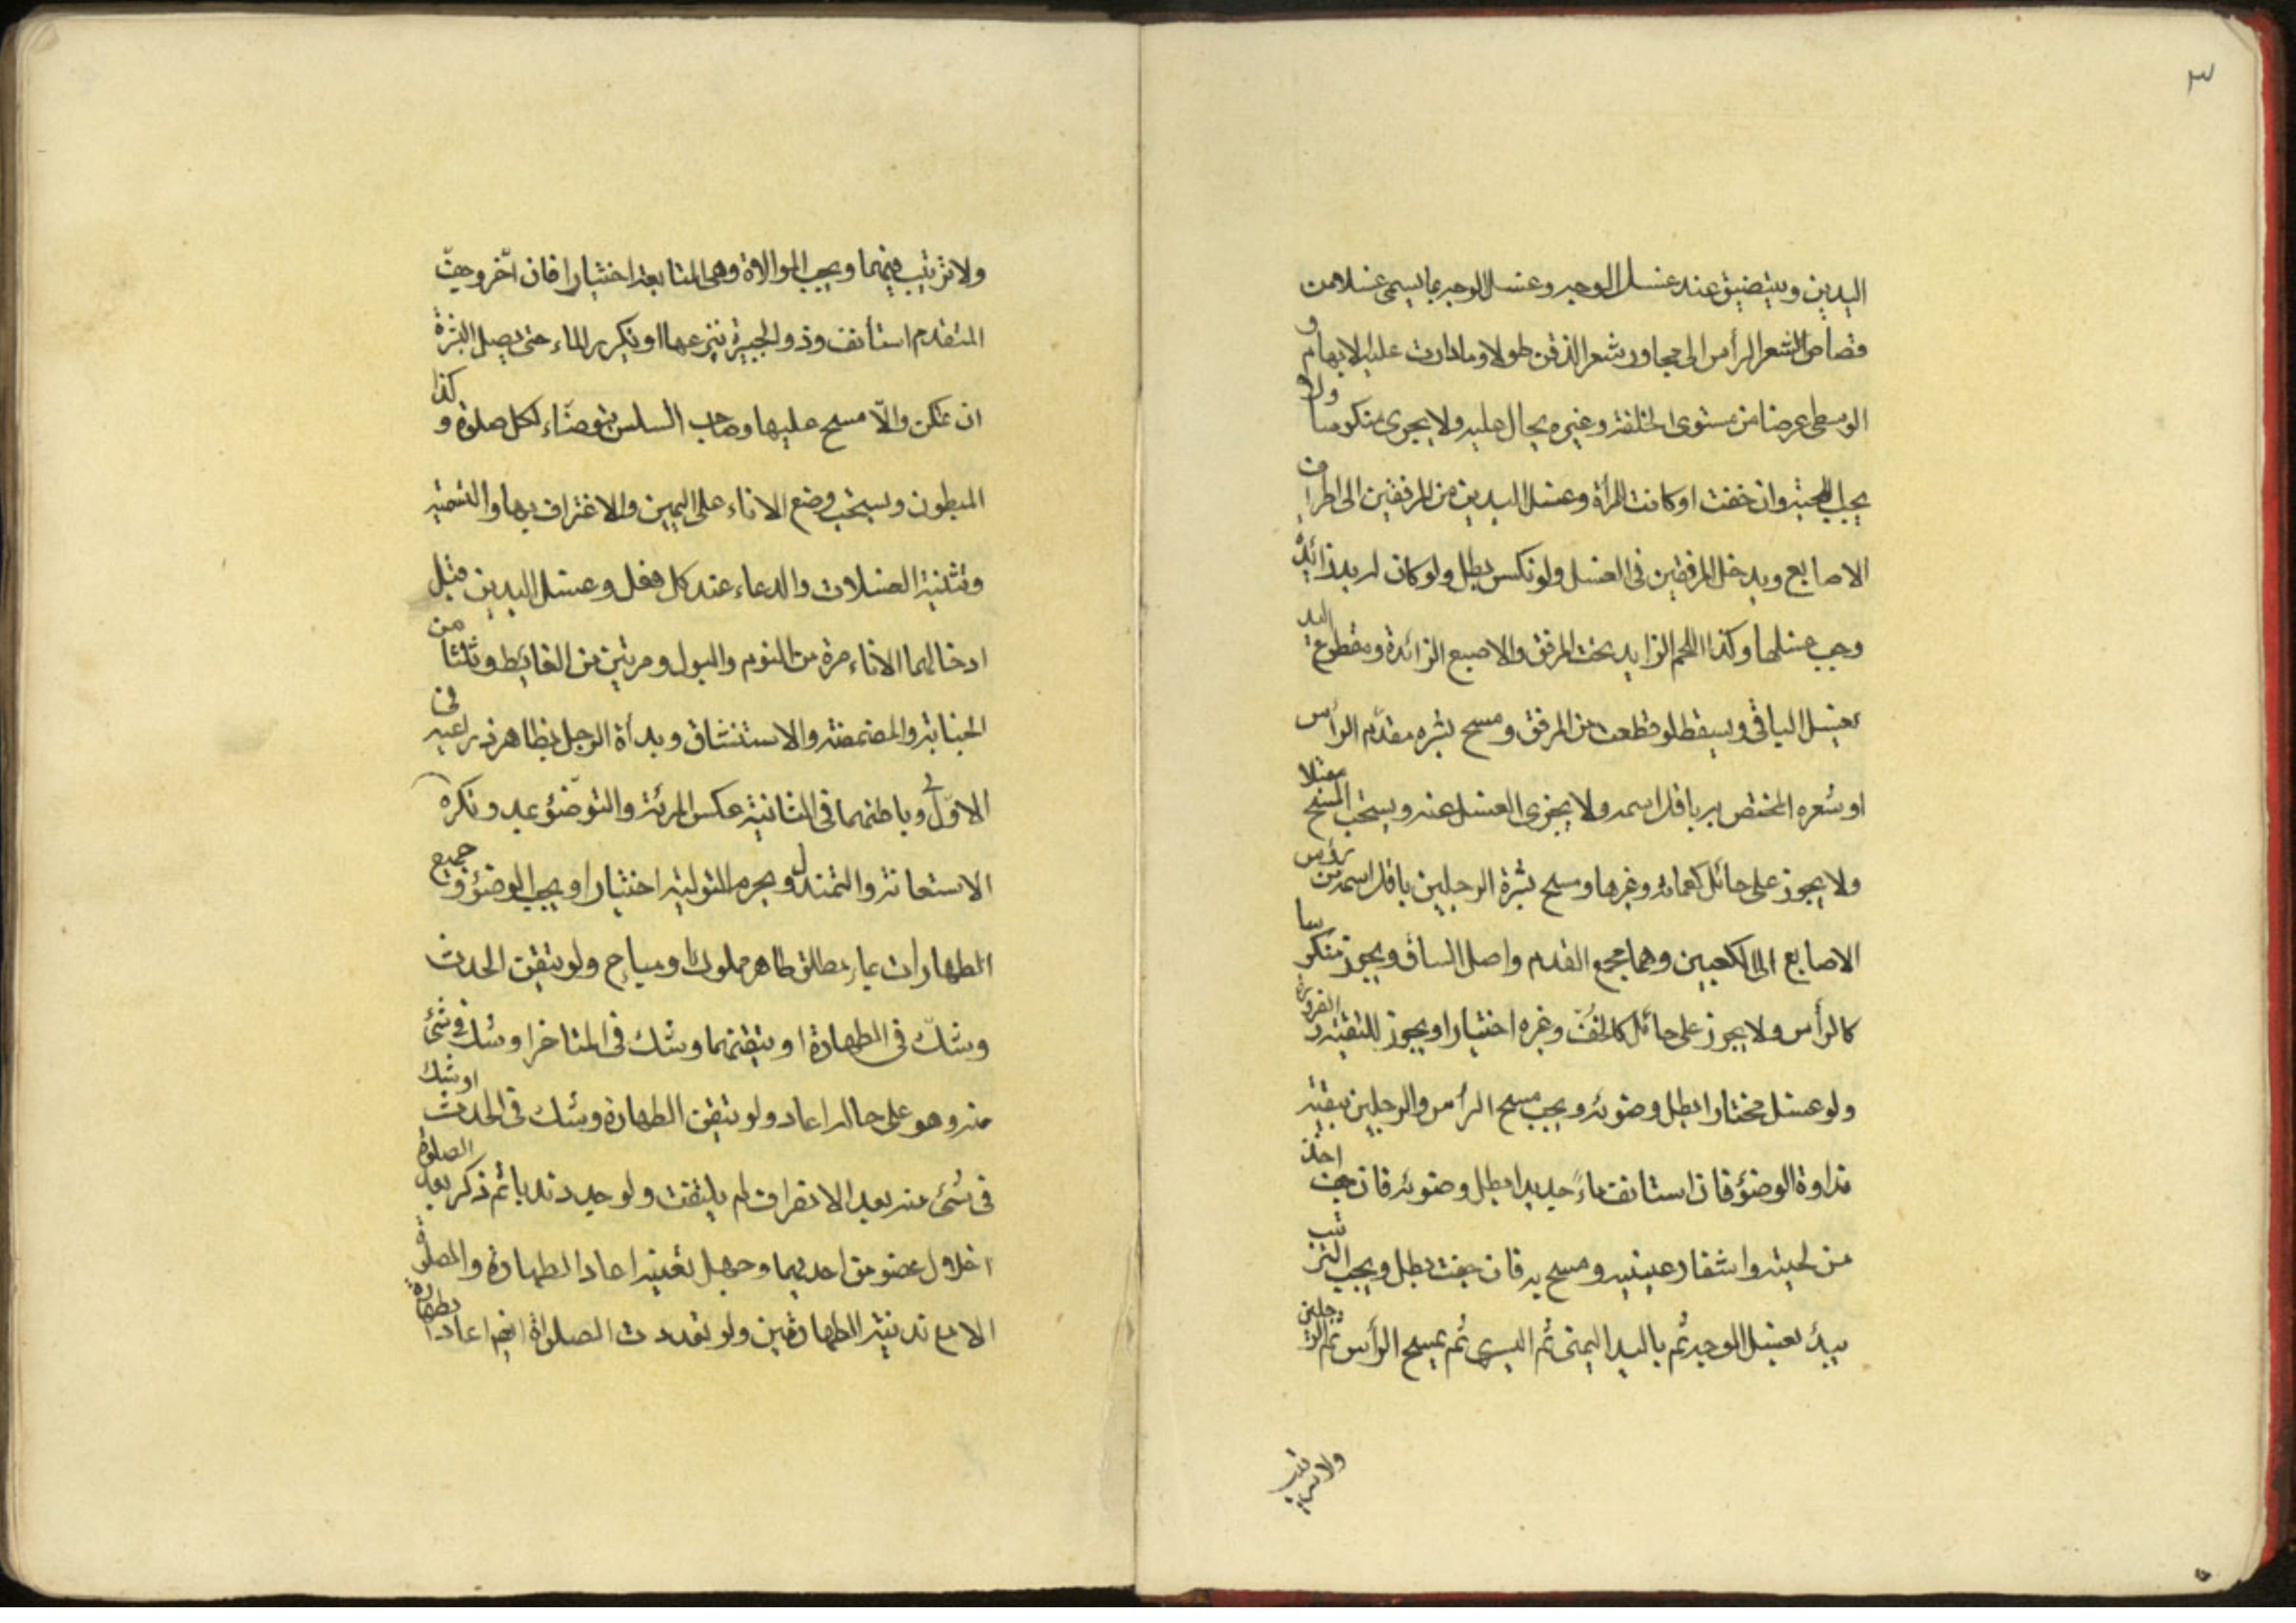 ٣
اليدين ويتضيق عند غسل الوجه وغسل الوجه بما يسمى غسلا من
قصاص الشعر الرأس الى محاور شعر الذقن طولا وما دارت عليه الابهام و
الوسطى عرضا من مستوى الخلقة وغيره يحال عليه ولا يجزى منكوسا ولا
يجب اللحية وان خفت او كانت المرأة وغسل اليدين من المرفقين الى اطراف
الاصابع ويدخل المرفقين فى الغسل ولو نكس بطل ولو كان له يد زائدة
وجب غسلها وكذا اللحم الزايد تحت المرفق والاصبع الزائدة ومقطوع اليد
يغسل الباقى ويسقط لو قطعت من المرفق ومسح بشره مقدّم الرأس
او شعره المختص به باقل اسمه ولا يجزى الغسل عنه ويستحب المسح مقبلا
ولا يجوز على حائل كعمامة وغيرها ومسح بشرة الرجلين باقل اسمه من رؤس
الاصابع الى الكعبين وهما مجمع القدم واصل الساق ويجوز منكوسا
كالرأس ولا يجوز على حائل كالخفّ وغيره اختيارا ويجوز للتقية والضرورة
ولو غسل مختارا بطل وضوئه ويجب مسح الرأس والرجلين ببقية
نداوة الوضؤ فان استانف ماءً جديدا بطل وضوئه فان جفت اخذ
من لحيته واشفار عينيه ومسح به فان جفت بطل ويجب الترتيب
يبدأ بغسل الوجه ثم باليد اليمنى ثم اليسرى ثم يمسح الرأس ثم الرجلين
ولا ترتيب
ولا ترتيب بينهما ويجب الموالاة وهى المتابعة اختيارا فان اخّر وجفّ
المتقدم استأنف وذو الجبيرة ينزعها او يكرير الماء حتى يصل البشرة
ان تمكن والّا مسح عليها وصاحب السلس يتوضّاء لكل صلوة و كذا
المبطون ويستحب وضع الاناء على اليمين والاغتراف بها والتسمية
وتثنية الغسلات والدعاء عند كل فعل وغسل اليدين قبل
ادخالهما الاناء مرة من النوم والبول ومرتين من الغايط وثلثا من
الجنابة والمضمضة والاستنشاق وبدأة الرجل بظاهر ذراعيه فى
الاوّل وباطنهما فى الثانية عكس المرئة والتوضّؤ بمد وتكره
الاستعانة والتمندل ويحرم التولية اختيارا ويجب الوضؤ و جميع
الطهارات بماء مطلق طاهر مملوك او مباح ولو تيقن الحدث
وشكّ فى الطهارة او تيقنهما وشك فى المتاخر او شك فى شئ
منه وهو على حاله اعاد ولو تيقن الطهارة وشك فى الحدث او شك
فى شئ منه بعد الانصراف لم يلتفت ولو جدد ندبا ثم ذكر بعد الصلوة
اخلال عضو من احديهما وجهل تعينه اعاد الطهارة والصلوة
الا مع ندبية الطهارتين ولو تعددت الصلواة ايضا اعادا بطهارة